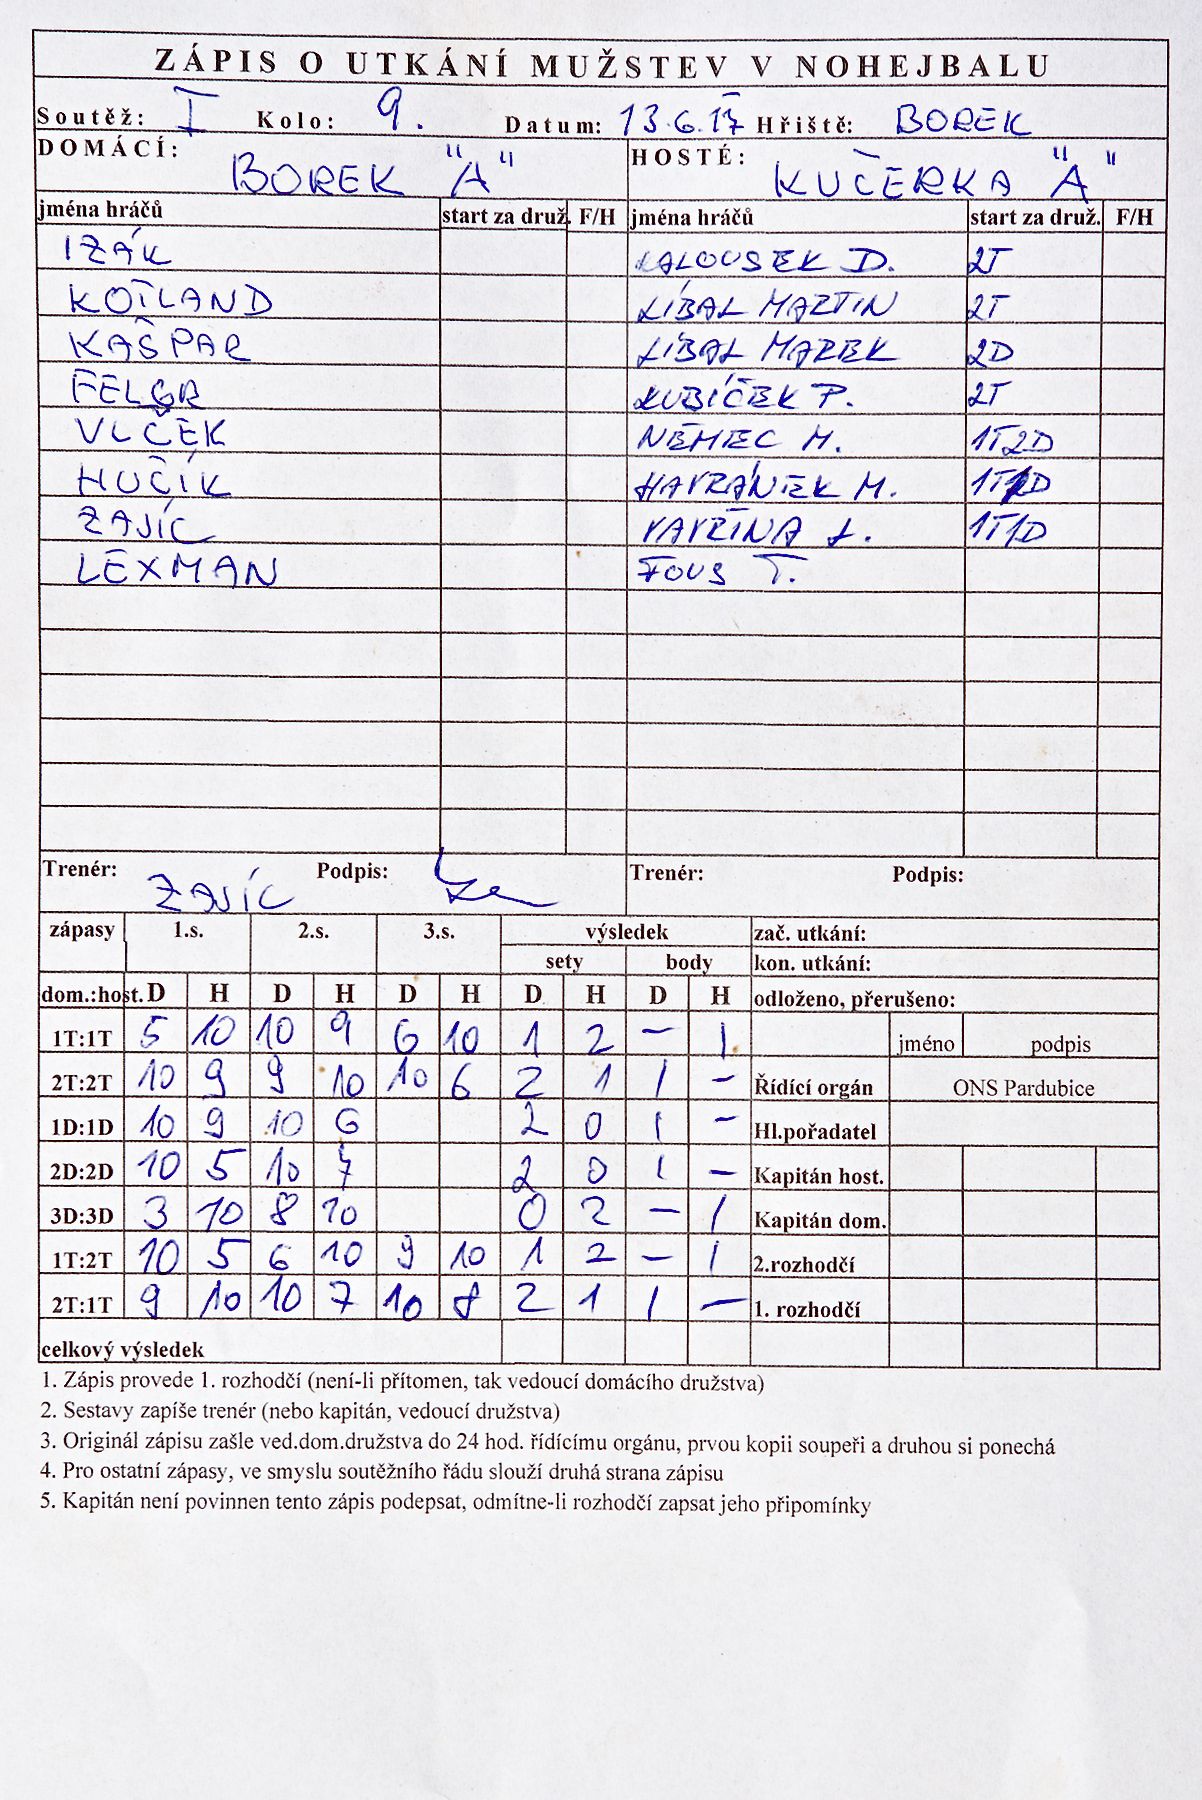 ZÁPIS O UTKÁNÍ MUŽSTEV V NOHEJBALU
Soutěž: I Kolo: 9. Datum: 13.6.17 Hřiště: BOREK
DOMÁCÍ: BOREK "A" HOSTÉ: KUČERKA "A"
jména hráčů start za druž. F/H jména hráčů start za druž. F/H
IZÁK KALOUSEK D. 2T
KOTLAND LÍBAL MARTIN 2T
KAŠPAR LÍBAL MAREK 2D
FELGR KUBÍČEK P. 2T
VLČEK NĚMEC M. 1T2D
HUČÍK HAVRÁNEK M. 1T1D
ZAJÍC VAVŘINA L. 1T1D
LEXMAN FOUS T.
Trenér: ZAJÍC Podpis: Trenér: Podpis:
zápasy 1.s. 2.s. 3.s. výsledek zač. utkání:
sety body kon. utkání:
dom.:host. D H D H D H D H D H odloženo, přerušeno:
1T:1T 5 10 10 9 6 10 1 2 – 1 jméno podpis
2T:2T 10 9 9 10 10 6 2 1 1 – Řídící orgán ONS Pardubice
1D:1D 10 9 10 6 2 0 1 – Hl.pořadatel
2D:2D 10 5 10 7 2 0 1 – Kapitán host.
3D:3D 3 10 8 10 0 2 – 1 Kapitán dom.
1T:2T 10 5 6 10 9 10 1 2 – 1 2.rozhodčí
2T:1T 9 10 10 7 10 8 2 1 1 – 1. rozhodčí
celkový výsledek
1. Zápis provede 1. rozhodčí (není-li přítomen, tak vedoucí domácího družstva)
2. Sestavy zapíše trenér (nebo kapitán, vedoucí družstva)
3. Originál zápisu zašle ved.dom.družstva do 24 hod. řídícímu orgánu, prvou kopii soupeři a druhou si ponechá
4. Pro ostatní zápasy, ve smyslu soutěžního řádu slouží druhá strana zápisu
5. Kapitán není povinnen tento zápis podepsat, odmítne-li rozhodčí zapsat jeho připomínky